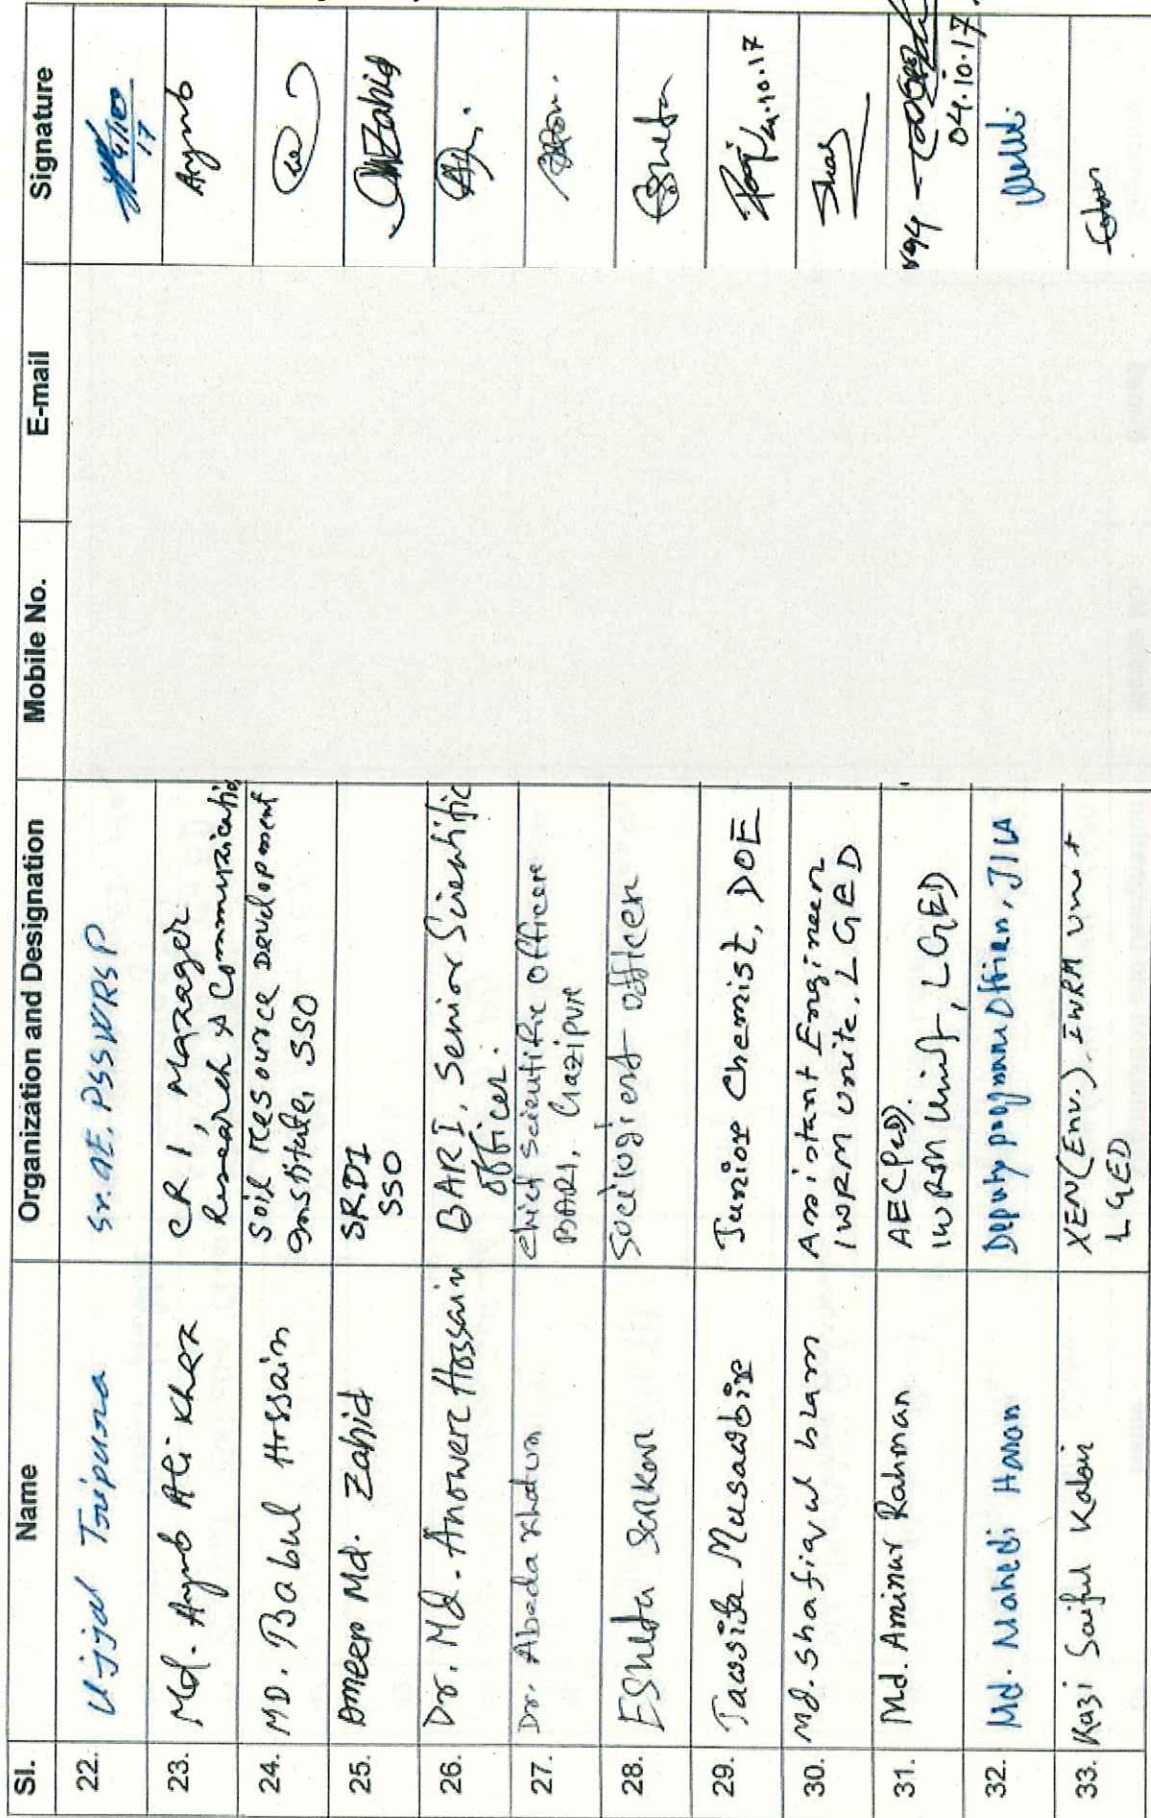 Sl. Name Organization and Designation Mobile No. E-mail Signature
22. Ujjal Tripura Sr. AE, PSSWRSP
23. Md. Ayub Ali Khan CRI, Manager Ayub
Research & Communication
24. MD. Babul Hossain Soil Resource Development
Institute, SSO
25. Ameer Md. Zahid SRDI Zahid
SSO
26. Dr. Md. Anower Hossain BARI, Senior Scientific
Officer.
27. Dr. Abeda Khatun Chief Scientific Officer
BARI, Gazipur
28. EShita Sarkar Sociologist officer Eshita
29. Tawsifa Musaabira Junior Chemist, DOE 4.10.17
30. Md. Shafiqul Islam Assistant Engineer
IWRM Unite, LGED
31. Md. Aminur Rahman AE(P&D). 04.10.17
IWRM Unit, LGED
32. Md. Mahedi Hasan Deputy programme Officer, JICA
33. Kazi Saiful Kabir XEN(Env.), IWRM Unit
LGED